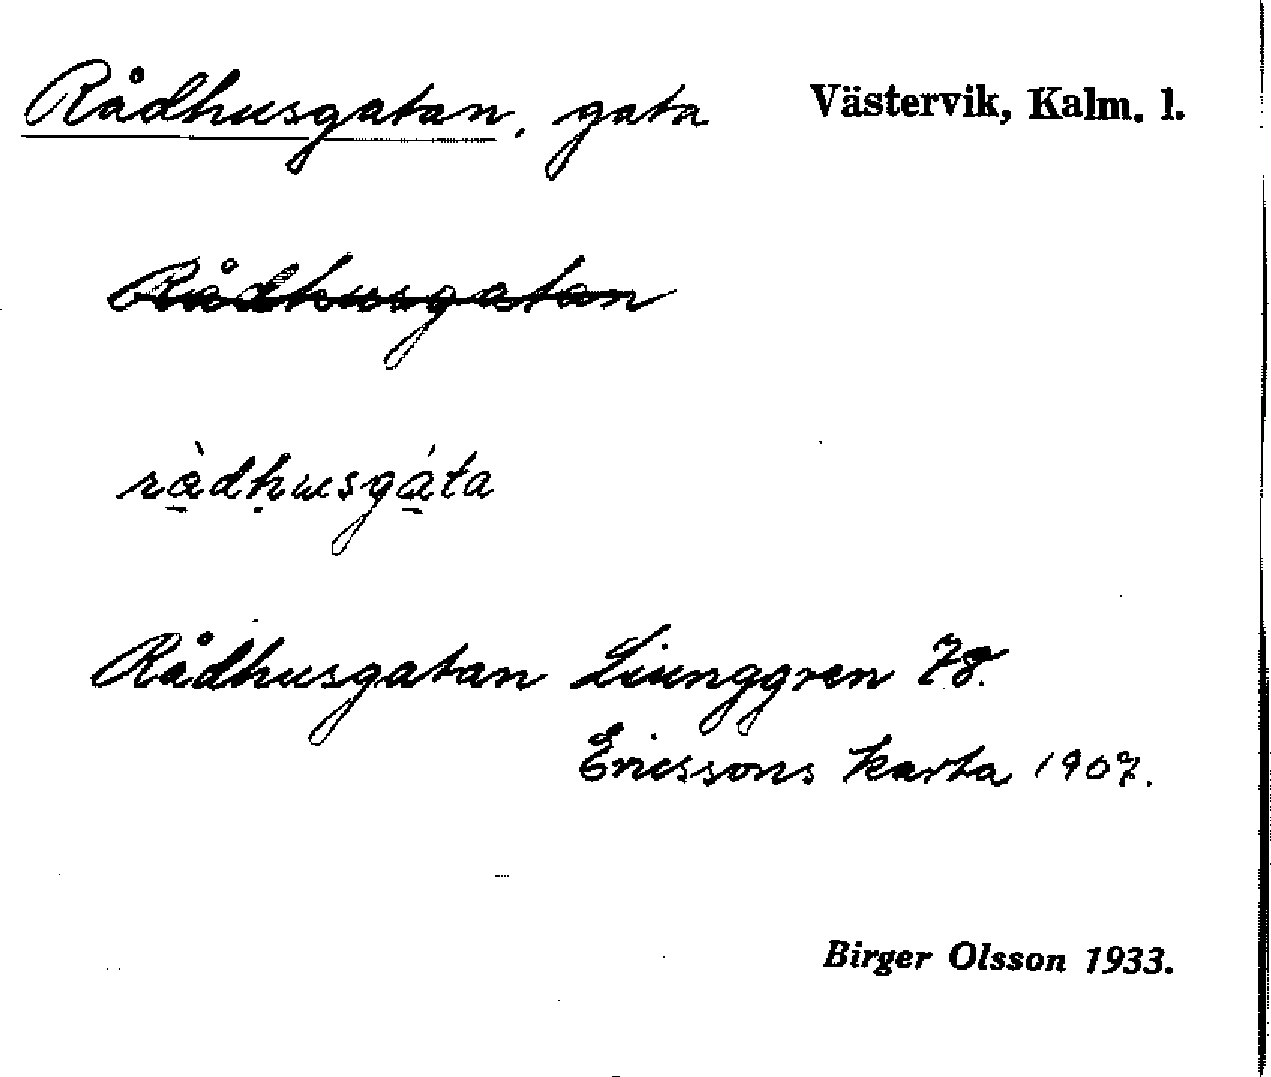 Rådhusgatan, gata Västervik, Kalm. l.
Rådhusgatan
rådhusgáta
Rådhusgatan Liunggren 78.
Ericssons karta 1907.
Birger Olsson 1933.